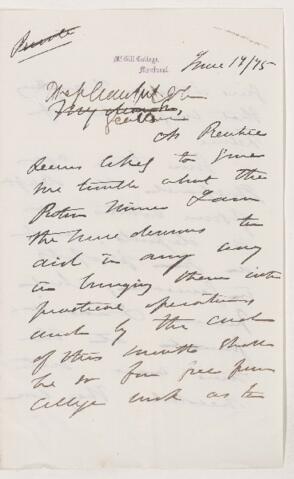 Private
McGill College,
Montreal.
June 14/75
Gentlemen
As Prentice
seems likely to give
me trouble about the
Mines I am
the more desirous to
aid in any way
in bringing them into
practical operations,
and by the end
of this month shall
be so far free from
College work as to